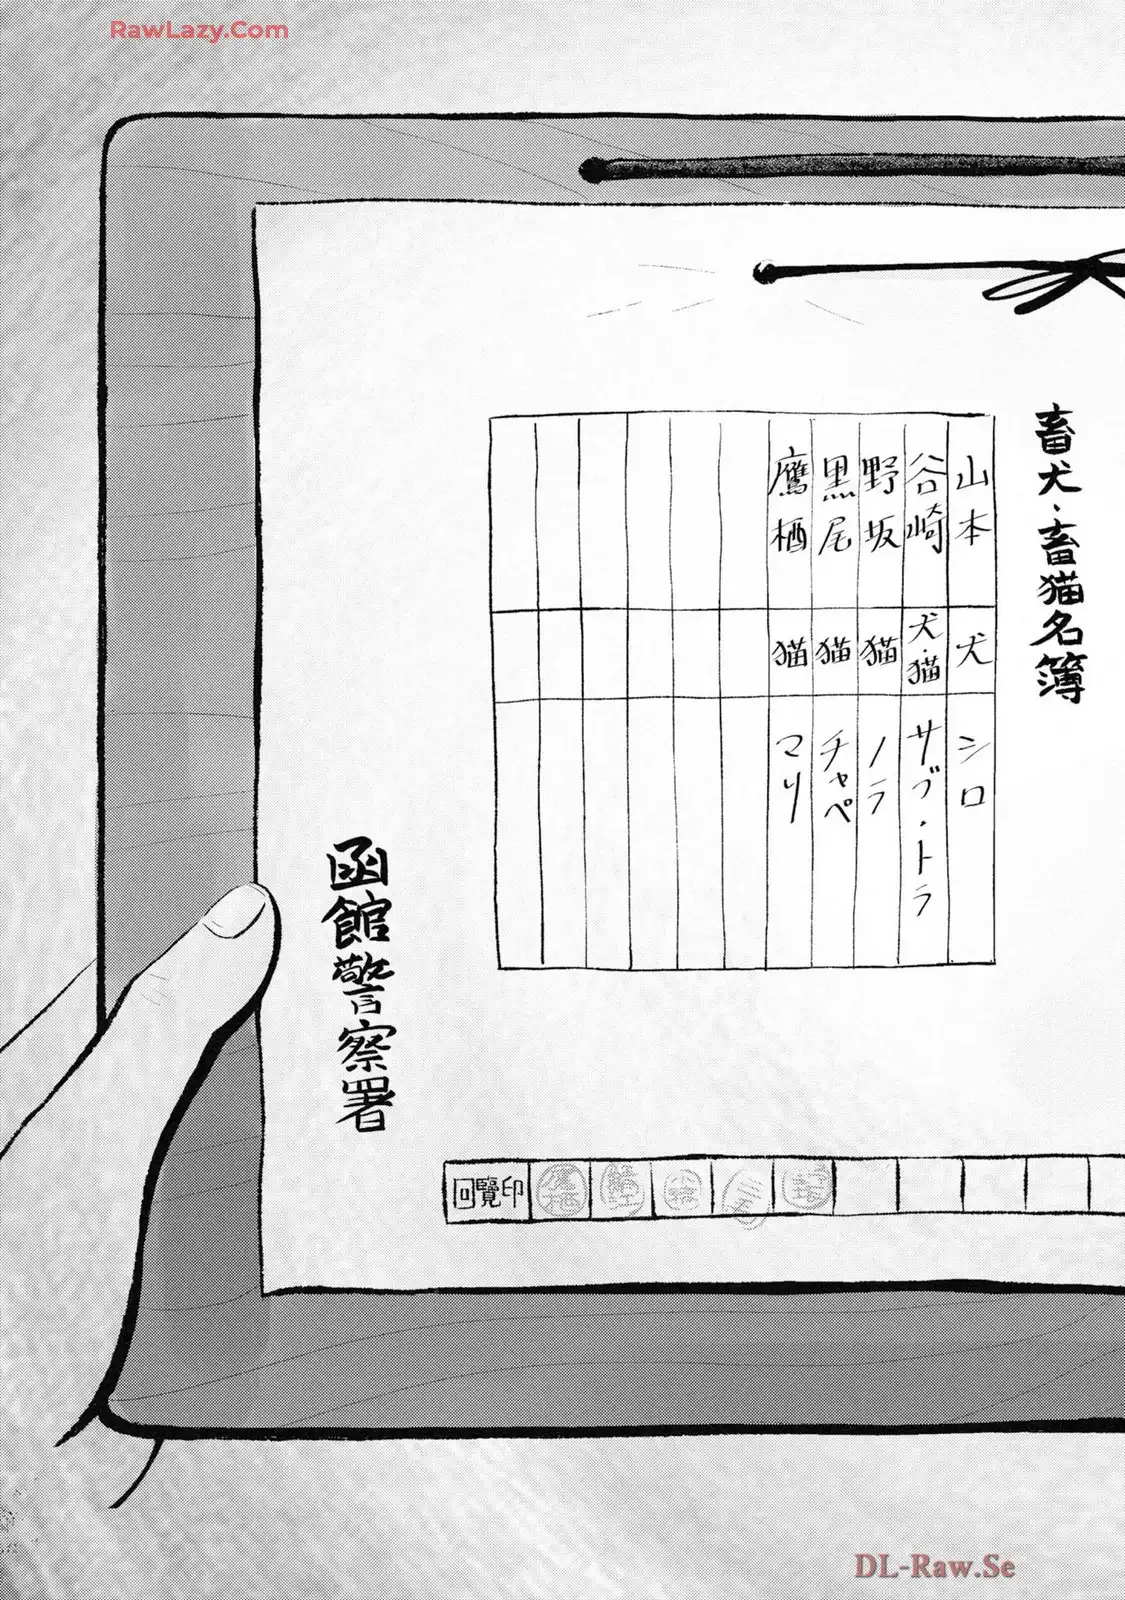 RawLazy.Com
畜犬・畜猫名簿
山本 犬 シロ
谷崎 犬・猫 サブ・トラ
野坂 猫 ノラ
黒尾 猫 チャペ
鷹栖 猫 マリ
函館警察署
回覧印
鷹栖
DL-Raw.Se